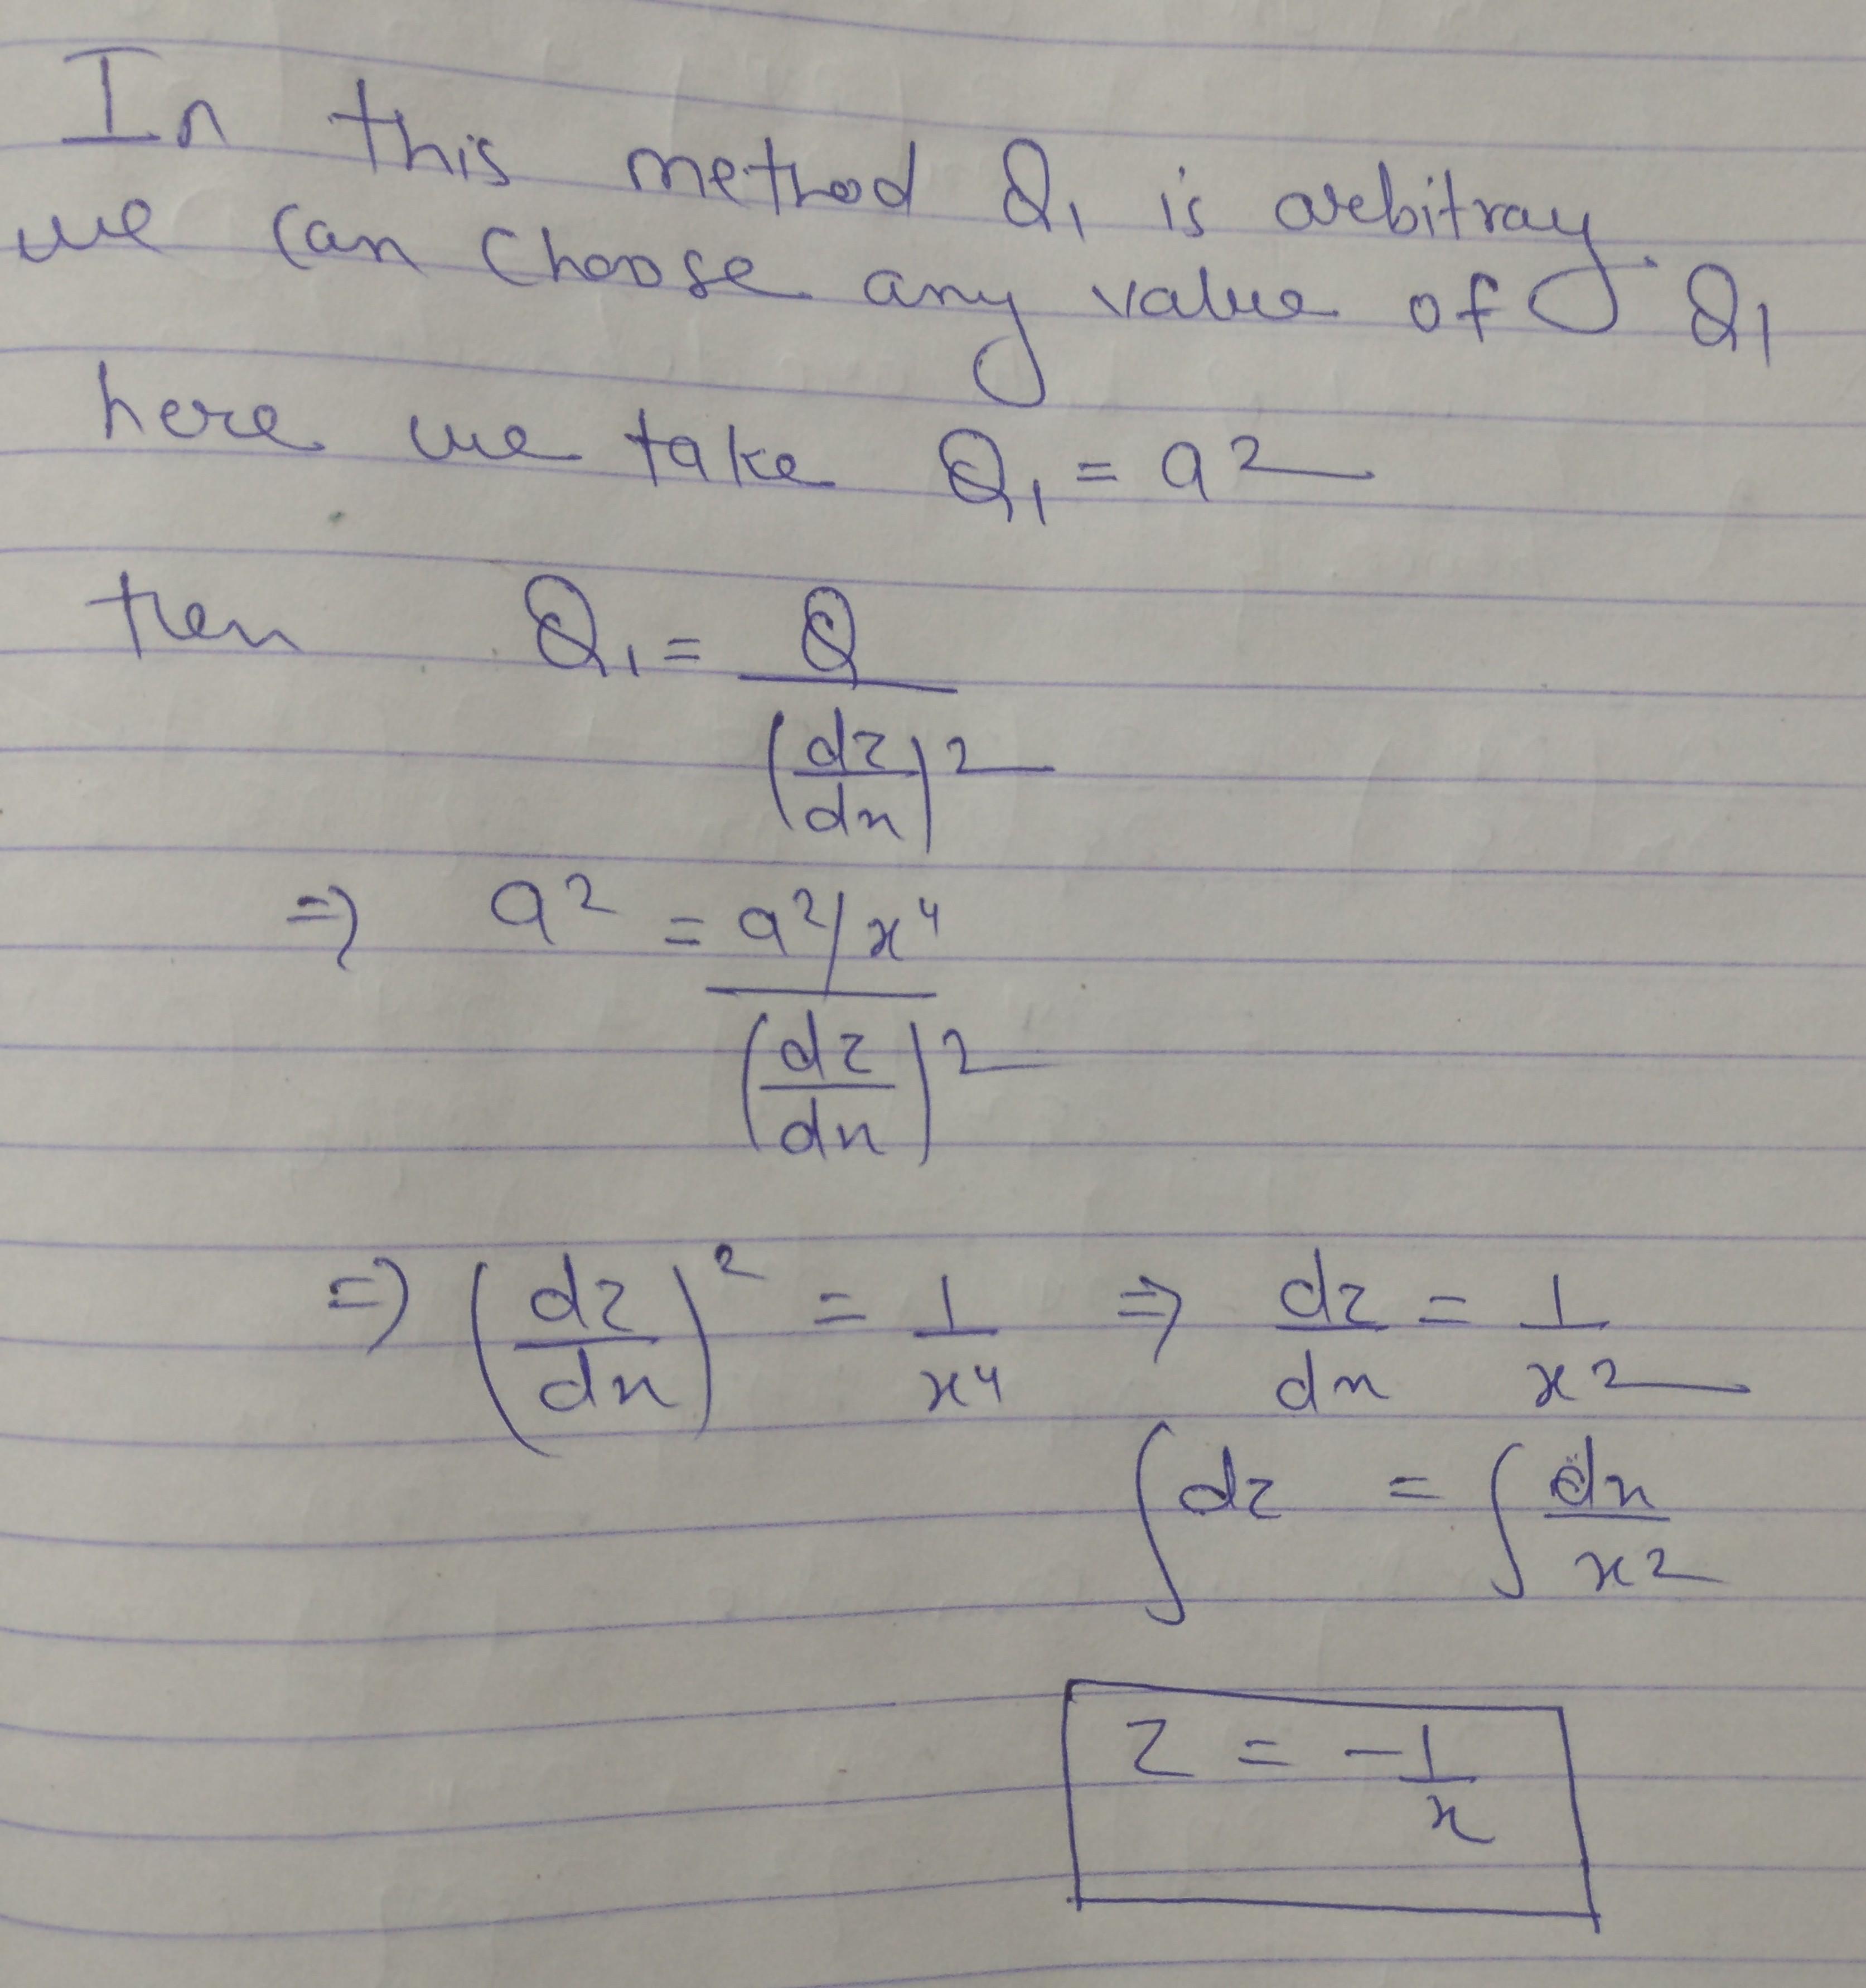 In this method Q₁ is arbitray.
we can choose any value of Q₁
here we take Q₁ = a²
then Q₁ = Q / (dz/dx)²
⇒ a² = (a²/x⁴) / (dz/dx)²
⇒ (dz/dx)² = 1/x⁴ ⇒ dz/dx = 1/x²
∫dz = ∫dx/x²
z = -1/x